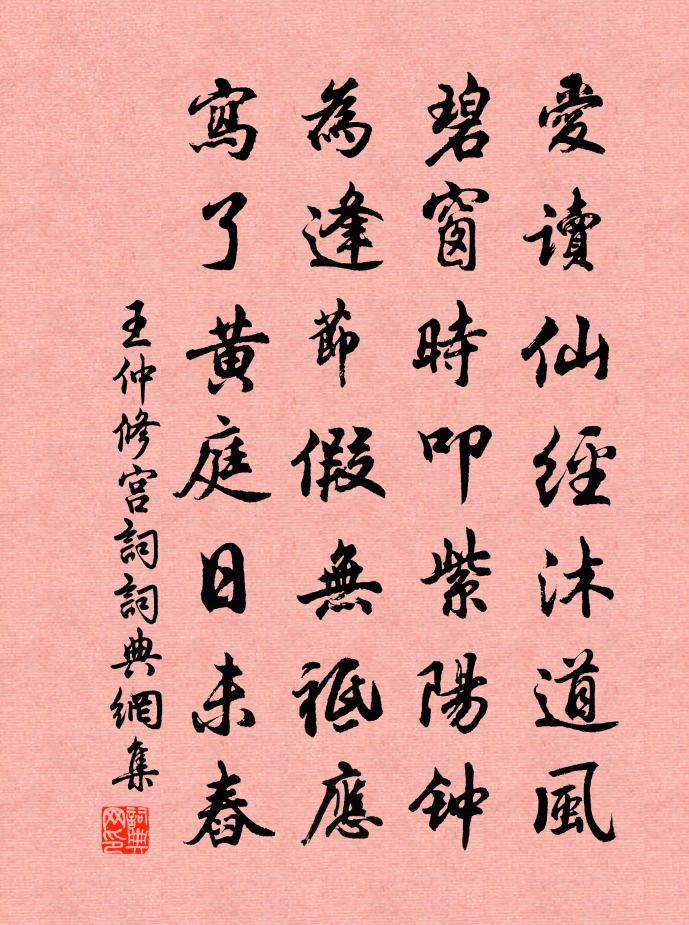 愛讀仙經沐道風
碧窗時叩紫陽钟
為逢節假無祗應
寫了黃庭日未舂
王仲修宮詞詞典網集
詞典网印